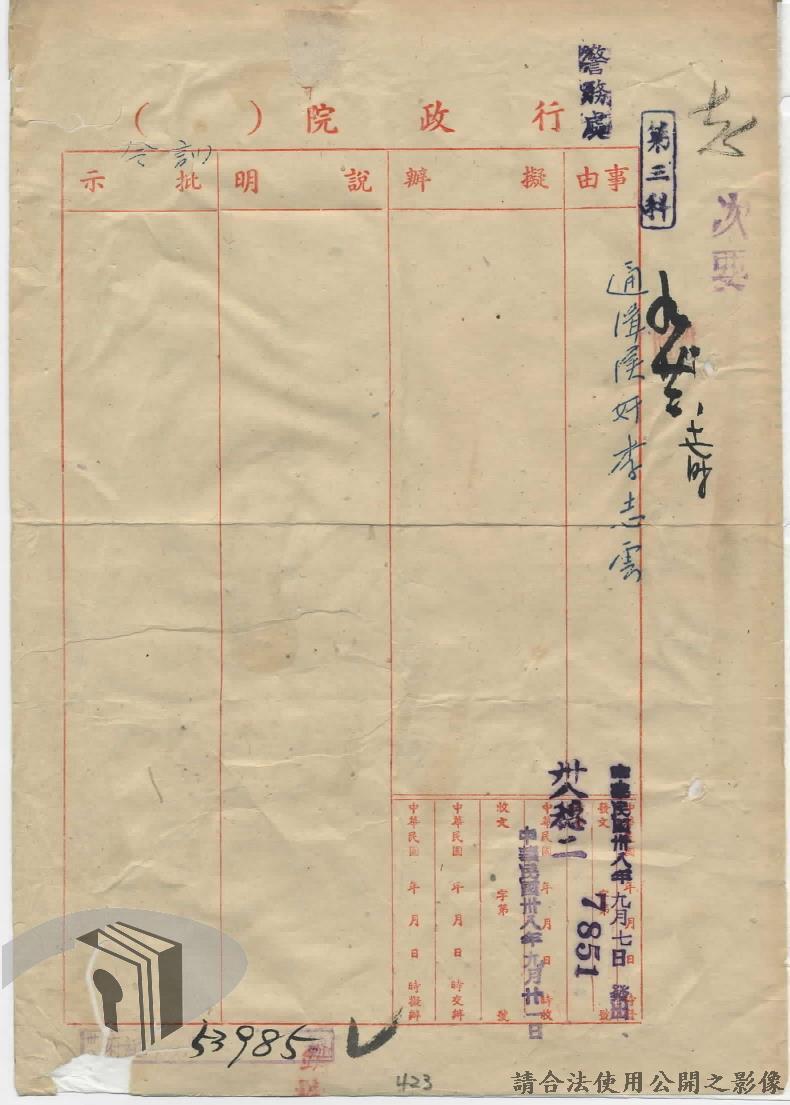 警務處
第三科
行政院（ ）
訓令
事由
擬辦
說明
批示
次要
通緝漢奸李志雲
中華民國卅八年九月七日 發出
卅八穗二
7851
中華民國卅八年九月廿一日
發文 字第 號
中華民國 年 月 日 時收
收文 字第 號
中華民國 年 月 日 時交辦
中華民國 年 月 日 時擬辦
53985
423
請合法使用公開之影像